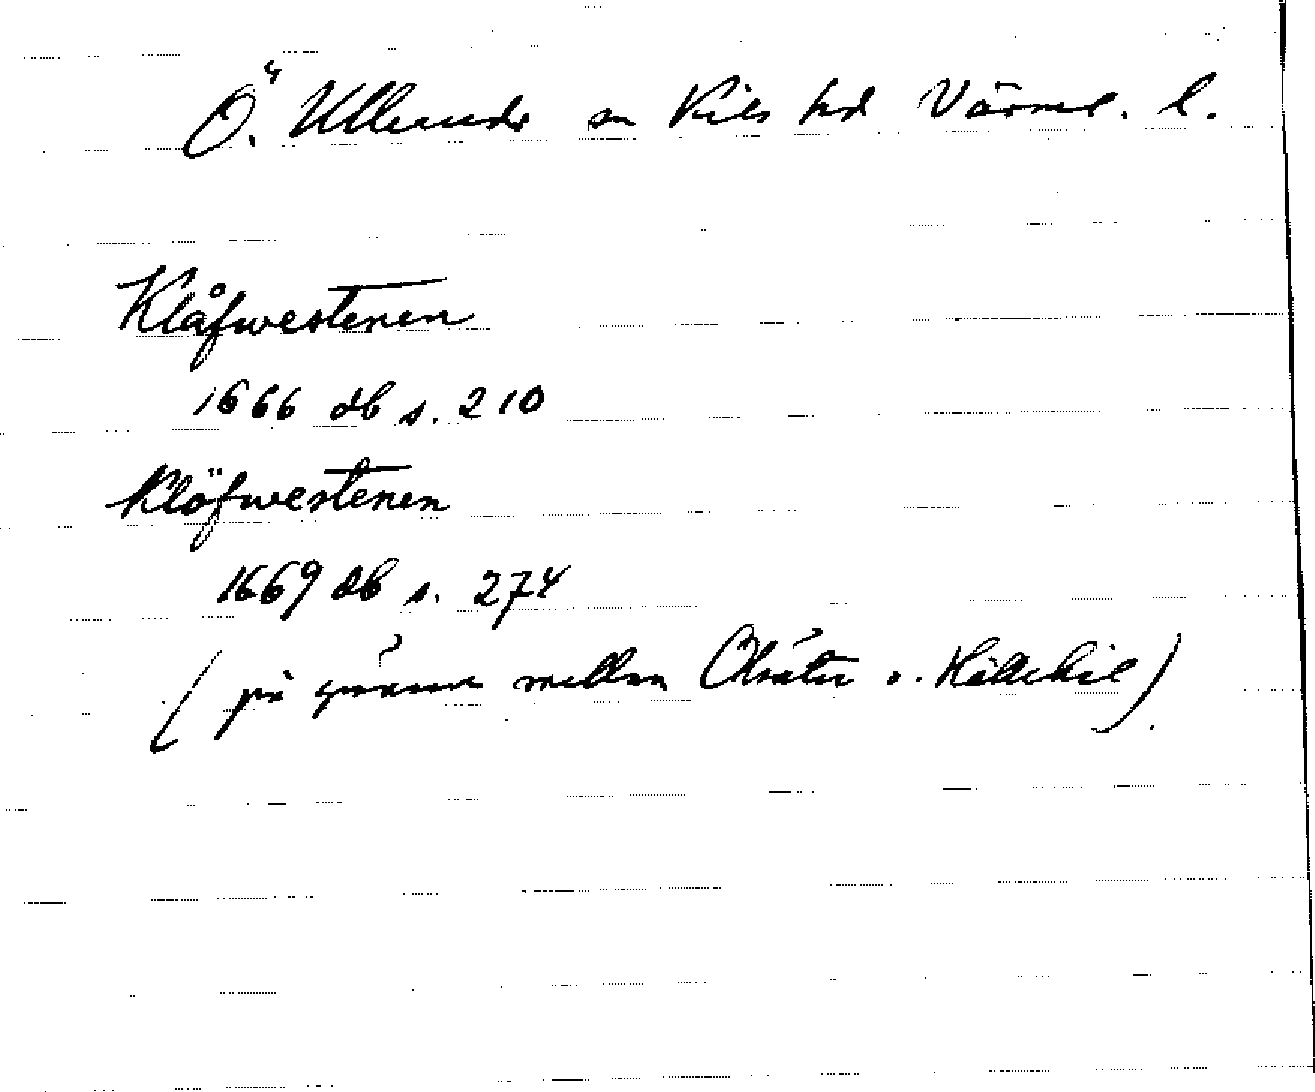 Ö. Ulleruds sn Kils hd Värml. l.
Klåfwestenen
1666 db s. 210
Klöfwestenen
1669 db s. 274
(på gränsen mellan Olsäter o. Hällekil).